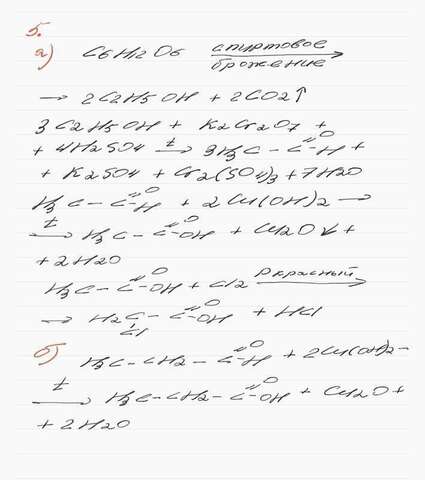 5.
а) C6H12O6 спиртовое брожение →
→ 2C2H5OH + 2CO2↑
3C2H5OH + K2Cr2O7 +
+ 4H2SO4 t→ 3H3C – C =O –H +
+ K2SO4 + Cr2(SO4)3 + 7H2O
H3C – C =O –H + 2Cu(OH)2 →
t→ H3C – C =O –OH + Cu2O↓ +
+ 2H2O
H3C – C =O –OH + Cl2 P красный →
→ H2C – C =O –OH + HCl
Cl
б) H3C – CH2 – C =O –H + 2Cu(OH)2 –
t→ H3C – CH2 – C =O –OH + Cu2O +
+ 2H2O